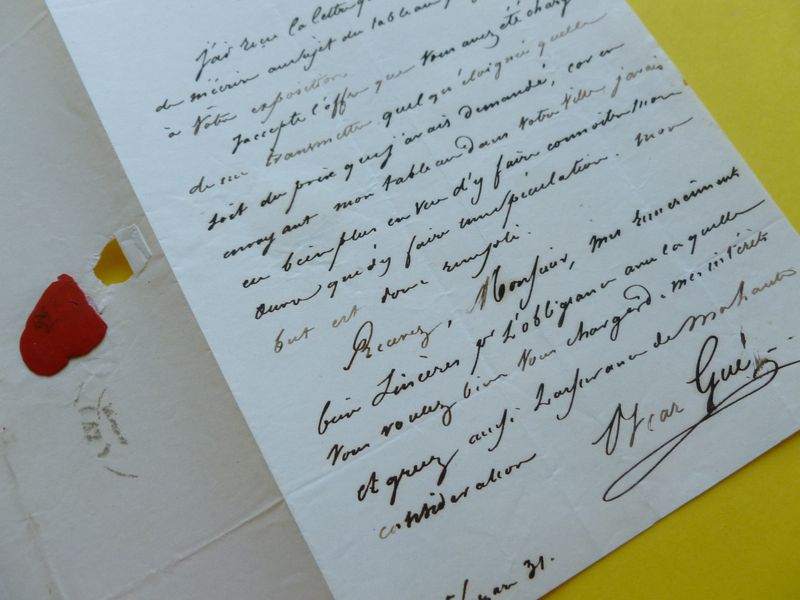 J'ai reçu la lettre q
de m'écrire au sujet du tableau
à votre exposition
J'accepte l'offre que vous avez été charg
de me transmettre quelqu'éloignée qu'elle
soit du prix que j'avais demandé, car en
envoyant mon tableau dans votre ville j'avais
eu bien plus en vue d'y faire connoitre mon
œuvre que d'y faire une spéculation. mon
but est donc rempli.
Recevez, Monsieur, mes remerciments
bien sincères pr l'obligeance avec laquelle
vous voulez bien vous charger de mes intérêts
et agreez aussi l'assurance de ma haute
considération
Oscar Gué
31.